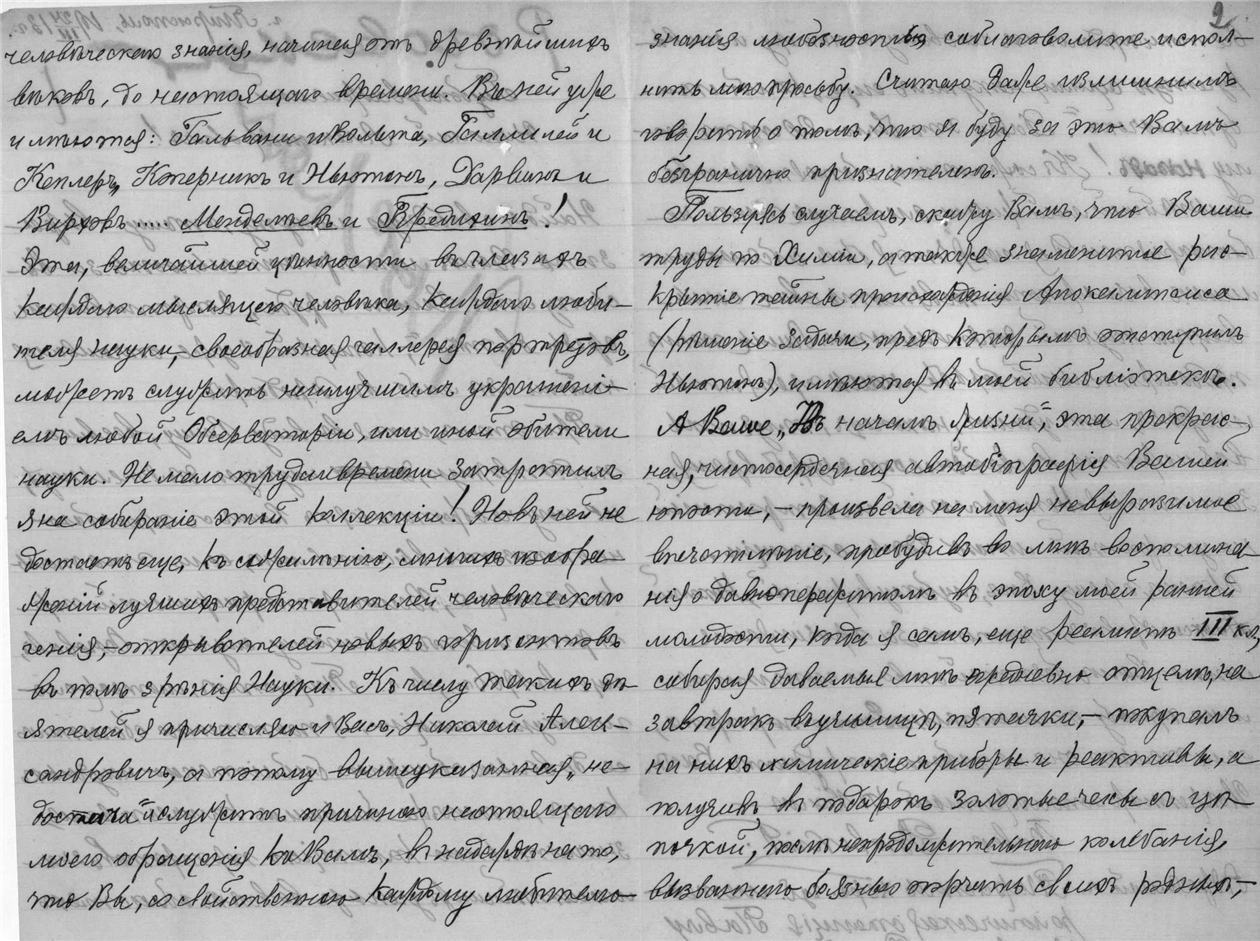 человѣческаго знанія, начиная отъ древнѣйшихъ
вѣковъ, до настоящаго времени. Въ ней уже
имѣются: Гальвани и Вольта, Галлилей и
Кеплеръ, Коперникъ и Ньютонъ, Дарвинъ и
Вирховъ ..... Менделѣевъ и Бредихинъ!
Эта, величайшей цѣнности въ глазахъ
каждаго мыслящаго человѣка, каждаго люби-
теля науки, своеобразная галлерея портретовъ,
можетъ служить наилучшимъ украшені-
емъ любой Обсерваторіи, или иной обители
науки. Не мало труда и времени затратилъ
я на собираніе этой коллекціи! Но въ ней не
достаетъ еще, къ сожалѣнію, многихъ изобра
женій лучшихъ представителей человѣческаго
генія, – открывателей новыхъ горизонтовъ
въ полѣ зрѣнія Науки. Къ числу такихъ дѣ
ятелей я причисляю и Васъ, Николай Алек-
сандровичъ, а потому вышеуказанная „не-
достача“ и служитъ причиною настоящаго
моего обращенія къ Вамъ, въ надеждѣ на то,
что Вы, со свойственною каждому любителю
2
знанія любезностью соблаговолите испол-
нить мою просьбу. Считаю даже излишнимъ
говорить о томъ, что я буду за это Вамъ
безгранично признателенъ.
Пользуясь случаемъ, скажу Вамъ, что Ваши
труды по Химіи, а также знаменитое рас-
крытіе тайны происхожденія Апокалипсиса
(рѣшеніе задачи, предъ которымъ отступилъ
Ньютонъ), имѣются въ моей библіотекѣ.
А Ваше „Въ началѣ жизни“, эта прекрас-
ная, чистосердечная автобіографія Вашей
юности, – произвела на меня невыразимое
впечатлѣніе, пробудивъ во мнѣ воспомина
нія о давнопережитомъ въ эпоху моей ранней
молодости, когда я самъ, еще реалистъ III кл.,
собирая даваемые мнѣ ежедневно отцемъ, на
завтракъ въ училищѣ, пятачки, – покупалъ
на нихъ химическіе приборы и реактивы, а
получивъ въ подарокъ золотые часы съ цѣ
почкой, послѣ непродолжительнаго колебанія,
вызваннаго боязнью огорчить своихъ родныхъ, –